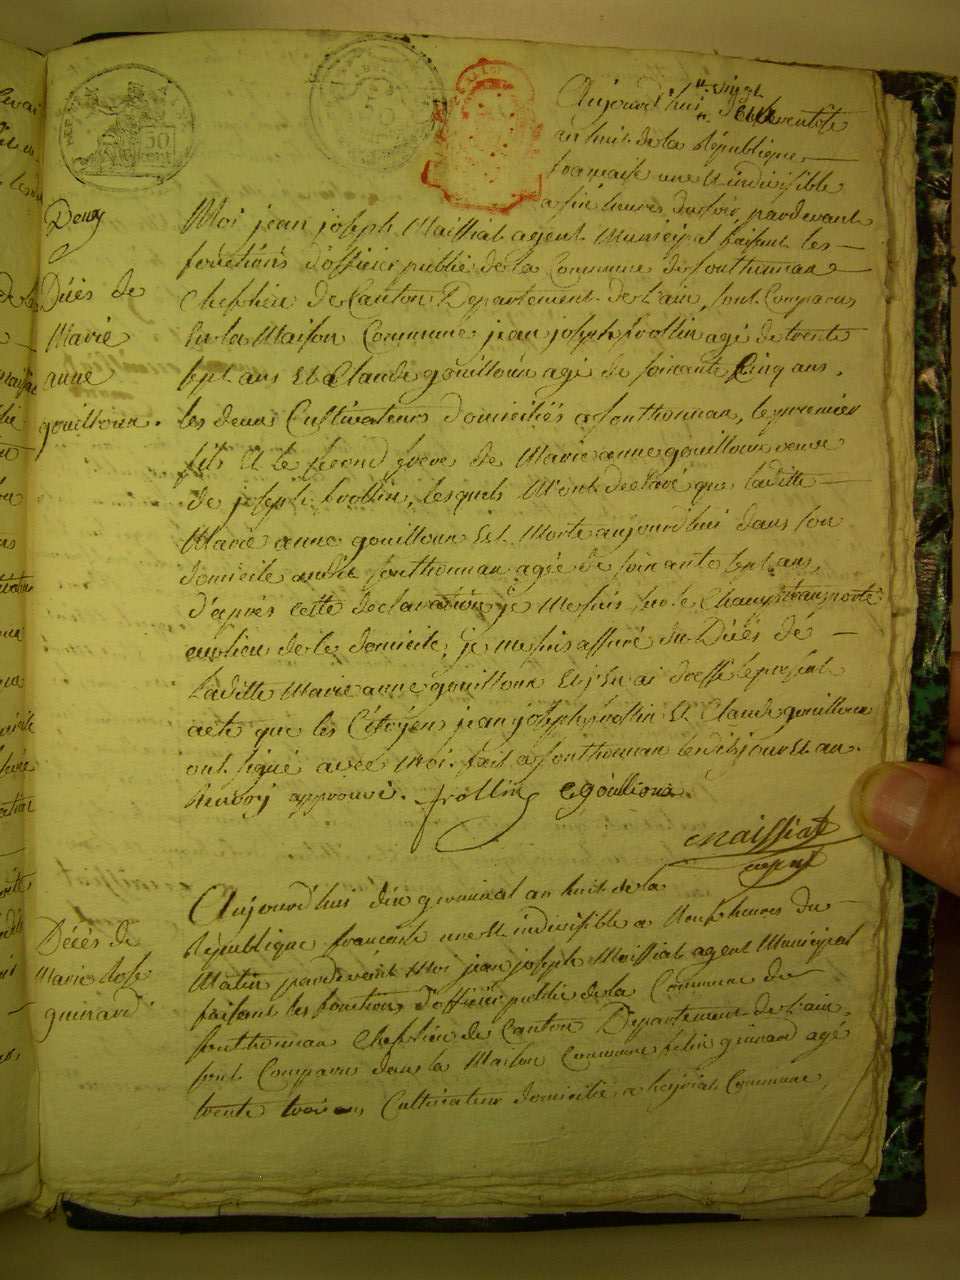 Aujourd'hui vingt deux ventose
an huit de la République
française une et indivisible
a six heures du soir, pardevant
Deux
Moi jean joseph Maissiat agent Municipal faisant les
fonctions d'officier public de la Commune de fonthonnan
Chef lieu de Canton Département de l'ain, sont Comparus
En la Maison Commune jean joseph frollin agé de trente
sept ans Et Claude gouilloux agé de soixante Cinq ans,
les deux Cultivateurs domiciliés a fonthonnan, le premier
fils Et le second frere de Marie anne gouilloux veuve
de joseph frollin, lesquels M'ont declaré que laditte
Marie anne gouilloux Est Morte aujourd'hui dans son
domicile audit fonthonnan agée de soixante sept ans,
d'après cette declaration, je Me suis sur le Champ transporté
au lieu de le domicile, je me suis assuré du Décès de
Laditte Marie anne gouilloux Et j'En ai dressé le present
acte que les Citoyen jean joseph frollin Et Claude gouilloux
ont signé avec Moi. fait a fonthonnan lesdits jour Et an.
approuvé. frollin C gouilloux
Maissiat
agent
Décès de
Marie
anne
gouilloux.
Aujourd'hui dix germinal an huit de la
République française une Et indivisible a Neuf heures du
Matin pardevant Moi jean joseph Maissiat agent Municipal
faisant les fonctions d'officier public de la Commune de
fonthonnan Chef lieu de Canton Département de l'ain,
sont Comparus dans la Maison Commune felix guinard agé
trente trois ans Cultivateur domicilié a heyriat Commune
Décès de
Marie Rose
guinard
50